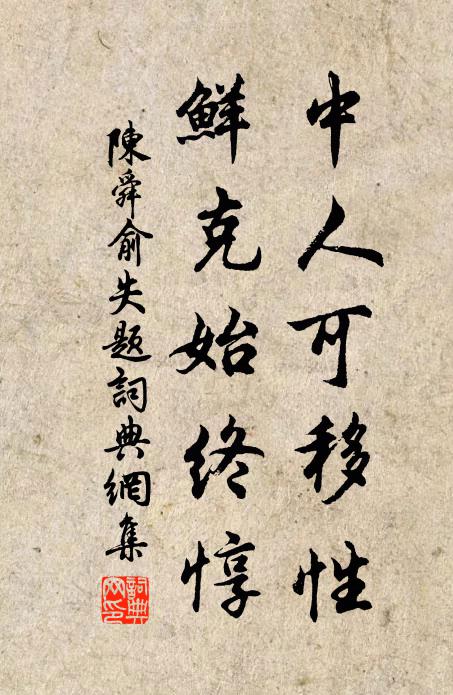 中人可移性
鮮克始終惇
陳舜俞失題詞典網集
詞典網印